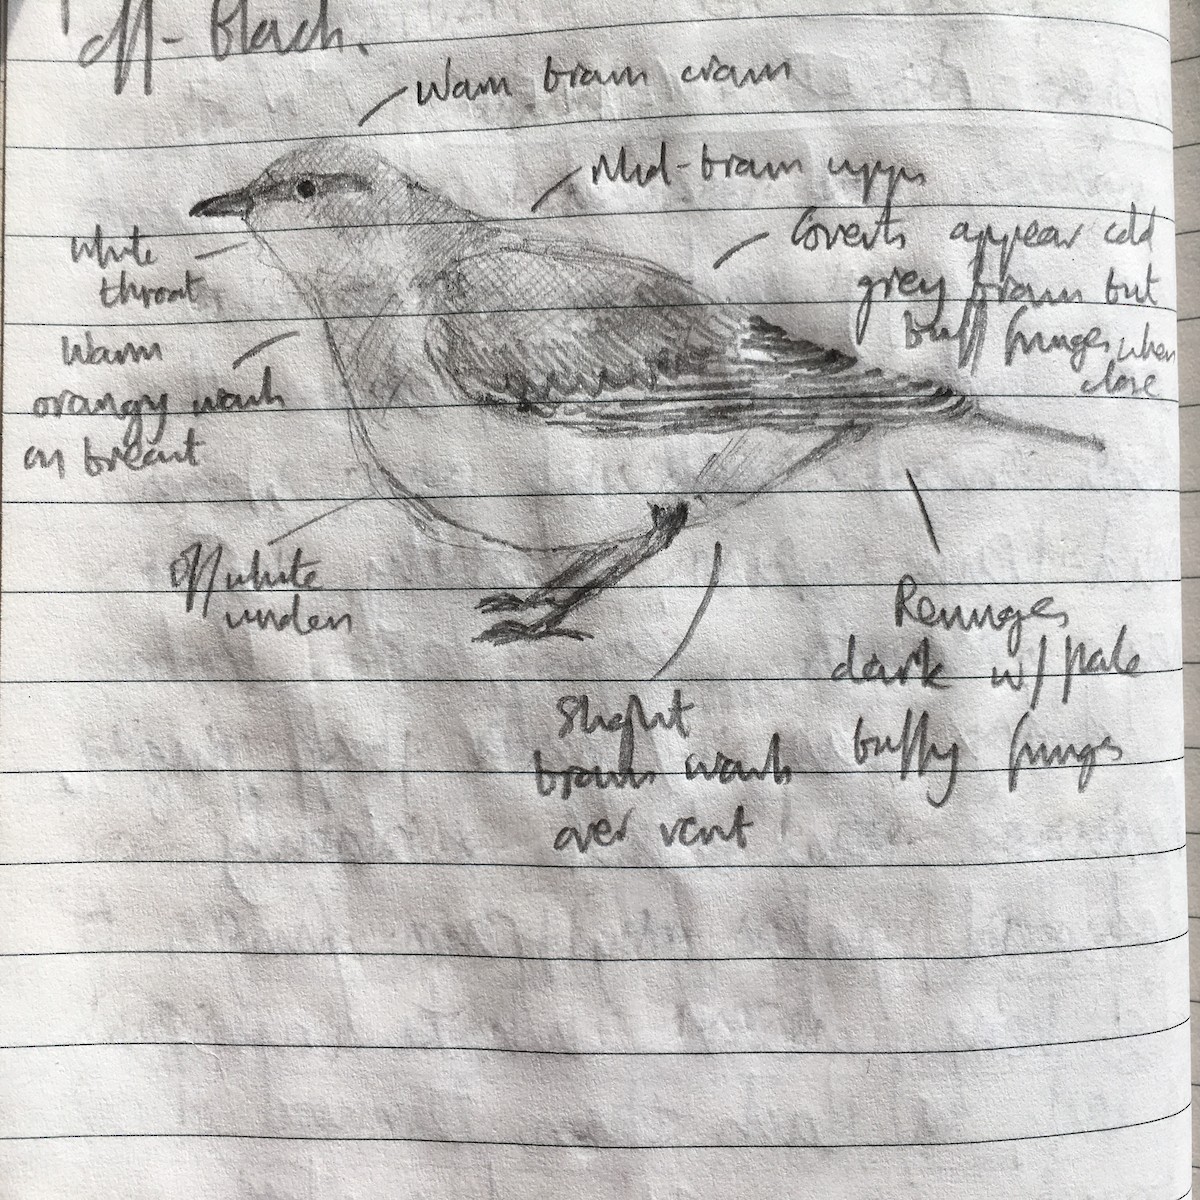 off-Black.
Warm brown crown
Mid-brown upps
Coverts appear cold
grey brown but
buff fringes when
close
White
throat
Warm
orangy wash
on breast
Off white
unders
Remiges
dark w/ pale
buffy fringes
Slight
brown wash
over vent